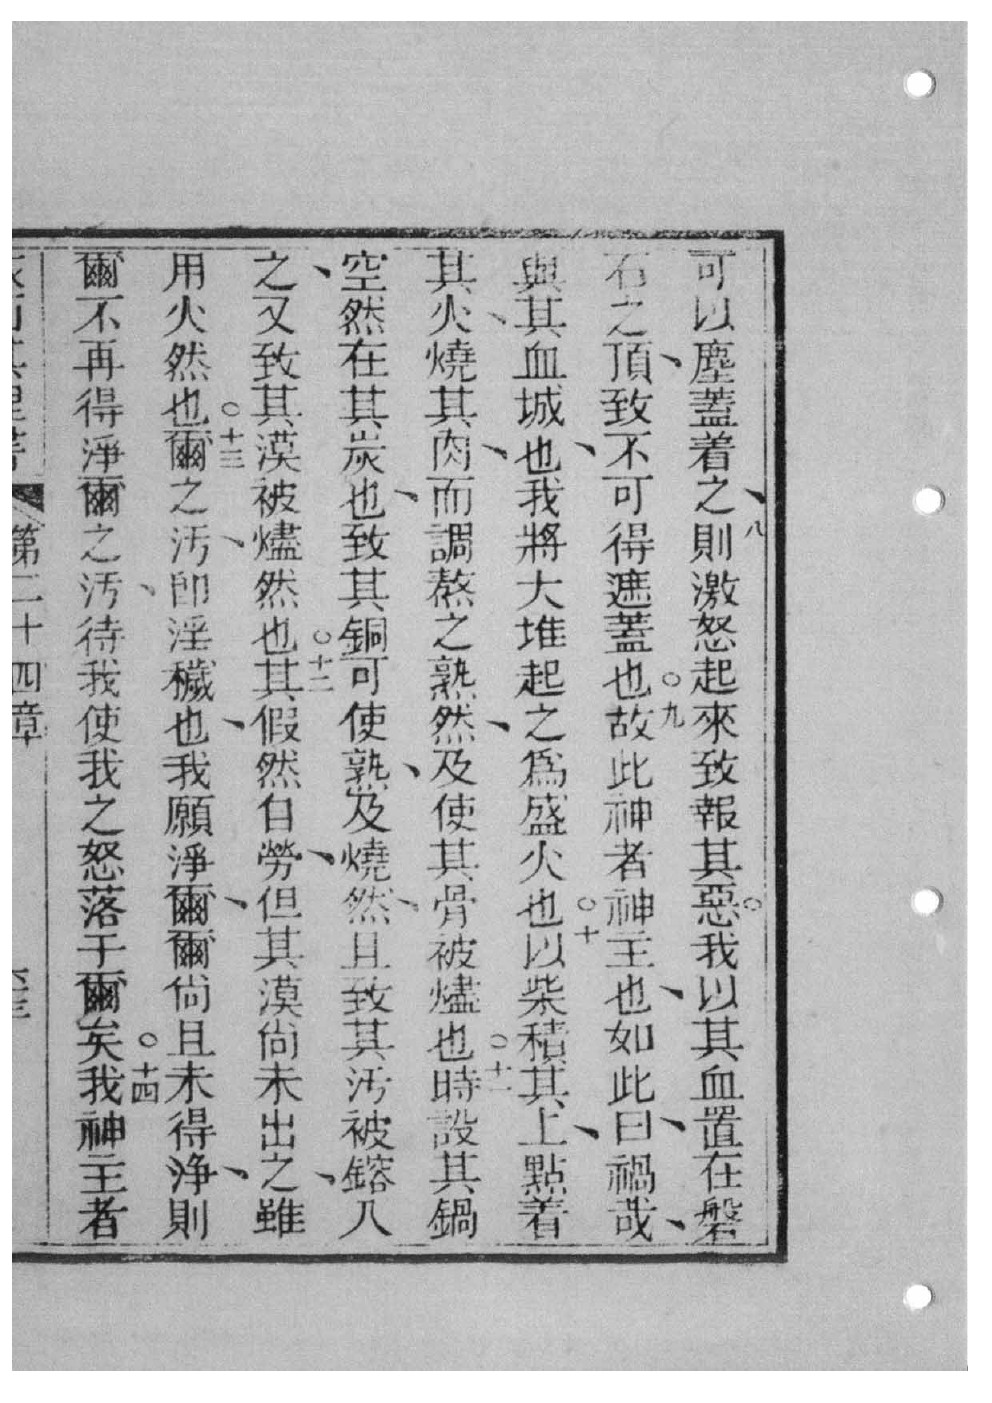 可以塵蓋着之、八則激怒起來致報其惡○我以其血置在磐
石之頂、致不可得遮蓋也○九故此神者神主也、如此曰、禍哉、
與其血城也、我將大堆起之爲盛火也○十以柴積其上、點着
其火、燒其肉、而調熬之熟然、及使其骨被燼也○十一時設其鍋
空然在其炭也、致其銅可使熟、及燒然、且致其汚被鎔入
之、又致其漠被燼然也○十二其假然自勞、但其漠尙未出之、雖
用火然也○十三爾之汚、卽淫穢也、我願淨爾、爾尙且未得淨、則
爾不再得淨爾之汚、待我使我之怒落于爾矣○十四我神主者
第二十四章